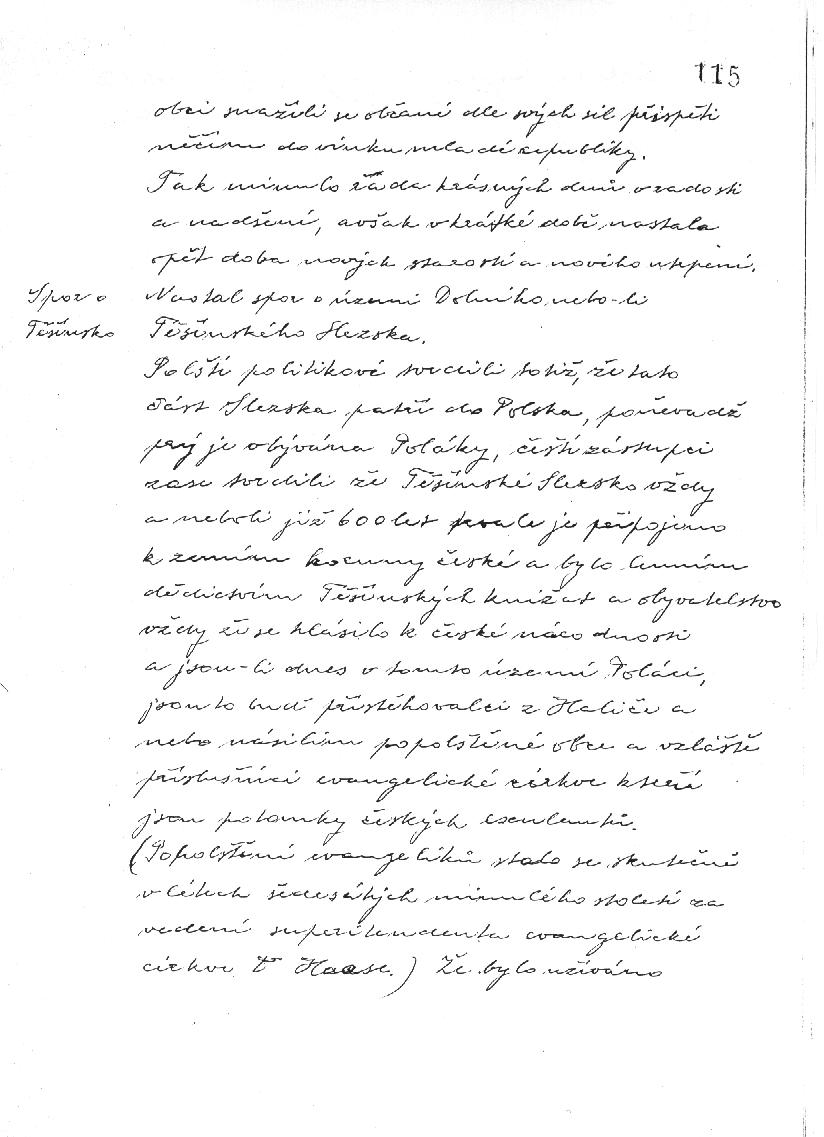 115
obci snažili se občané dle svých sil přispěti
něčím do vínku mladé republiky.
Tak minulo řada krásných dnů v radosti
a nadšení, avšak v krátké době, nastala
opět doba nových starostí a nového utrpení.
Spor o
Těšínsko
Nastal spor o území Dolního, nebo-li
Těšínského Slezska.
Polští politikové tvrdili totiž, že tato
část Slezska patří do Polska, poněvadž
prý je obývána Poláky, čeští zástupci
zase tvrdili že Těšínské Slezsko vždy
a neboli již 600 let je připojeno
k zemím koruny české a bylo lenním
dědictvím Těšínských knížat a obyvatelstvo
vždy že se hlásilo k české národnosti
a jsou-li dnes v tomto území Poláci,
jsou to buď přistěhovalci z Haliče a
nebo násilím popolštěné obce a vzláště
příslušníci evangelické církve kteří
jsou potomky českých exulantů.
(Popolštění evangelíků stalo se skutečně
v létech šedesátých minulého století za
vedení superitendenta evangelické
církve Dr Haase.) Že bylo užíváno